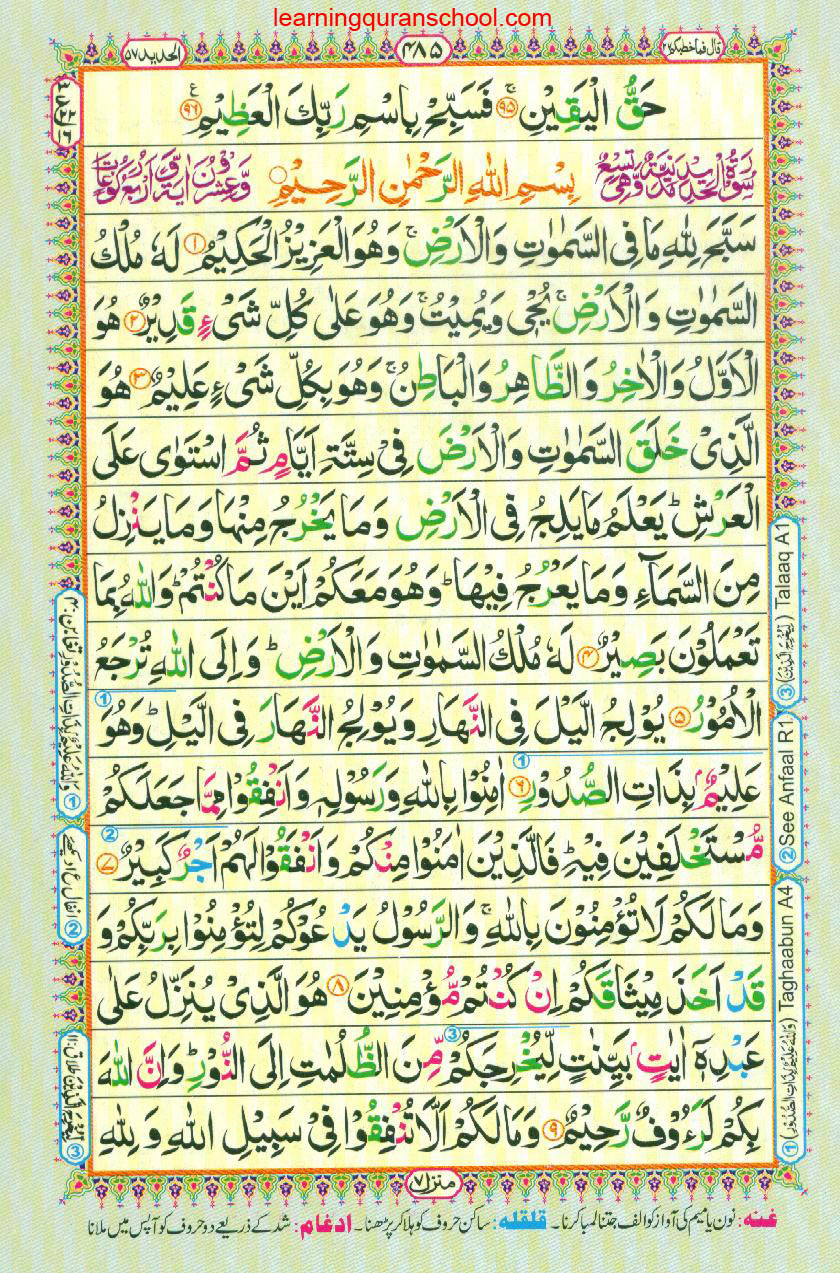 learningquranschool.com
قال فما خطبكم ۲۷
۴۸۵
الحدید ۵۷
حَقُّ الْیَقِیْنِۚ ﴿۹۵﴾ فَسَبِّحْ بِاسْمِ رَبِّكَ الْعَظِیْمِ ﴿۹۶﴾
سُوْرَةُ الْحَدِیْدِ مَدَنِیَّةٌ وَّهِیَ تِسْعٌ بِسْمِ اللّٰهِ الرَّحْمٰنِ الرَّحِیْمِ وَّعِشْرُوْنَ اٰیَةً وَّاَرْبَعُ رُكُوْعَاتٍ
سَبَّحَ لِلّٰهِ مَا فِی السَّمٰوٰتِ وَالْاَرْضِۚ وَهُوَ الْعَزِیْزُ الْحَكِیْمُ ﴿۱﴾ لَهٗ مُلْكُ
السَّمٰوٰتِ وَالْاَرْضِۚ یُحْیٖ وَیُمِیْتُۚ وَهُوَ عَلٰی كُلِّ شَیْءٍ قَدِیْرٌ ﴿۲﴾ هُوَ
الْاَوَّلُ وَالْاٰخِرُ وَالظَّاهِرُ وَالْبَاطِنُۚ وَهُوَ بِكُلِّ شَیْءٍ عَلِیْمٌ ﴿۳﴾ هُوَ
الَّذِیْ خَلَقَ السَّمٰوٰتِ وَالْاَرْضَ فِیْ سِتَّةِ اَیَّامٍ ثُمَّ اسْتَوٰی عَلَی
الْعَرْشِؕ یَعْلَمُ مَا یَلِجُ فِی الْاَرْضِ وَمَا یَخْرُجُ مِنْهَا وَمَا یَنْزِلُ
مِنَ السَّمَآءِ وَمَا یَعْرُجُ فِیْهَاؕ وَهُوَ مَعَكُمْ اَیْنَ مَا كُنْتُمْؕ وَاللّٰهُ بِمَا
تَعْمَلُوْنَ بَصِیْرٌ ﴿۴﴾ لَهٗ مُلْكُ السَّمٰوٰتِ وَالْاَرْضِؕ وَاِلَی اللّٰهِ تُرْجَعُ
الْاُمُوْرُ ﴿۵﴾ یُوْلِجُ الَّیْلَ فِی النَّهَارِ وَیُوْلِجُ النَّهَارَ فِی الَّیْلِؕ وَهُوَ
عَلِیْمٌۢ بِذَاتِ الصُّدُوْرِ ﴿۶﴾ اٰمِنُوْا بِاللّٰهِ وَرَسُوْلِهٖ وَاَنْفِقُوْا مِمَّا جَعَلَكُمْ
مُّسْتَخْلَفِیْنَ فِیْهِؕ فَالَّذِیْنَ اٰمَنُوْا مِنْكُمْ وَاَنْفَقُوْا لَهُمْ اَجْرٌ كَبِیْرٌ ﴿۷﴾
وَمَا لَكُمْ لَا تُؤْمِنُوْنَ بِاللّٰهِۚ وَالرَّسُوْلُ یَدْعُوْكُمْ لِتُؤْمِنُوْا بِرَبِّكُمْ وَ
قَدْ اَخَذَ مِیْثَاقَكُمْ اِنْ كُنْتُمْ مُّؤْمِنِیْنَ ﴿۸﴾ هُوَ الَّذِیْ یُنَزِّلُ عَلٰی
عَبْدِهٖۤ اٰیٰتٍۭ بَیِّنٰتٍ لِّیُخْرِجَكُمْ مِّنَ الظُّلُمٰتِ اِلَی النُّوْرِؕ وَاِنَّ اللّٰهَ
بِكُمْ لَرَءُوْفٌ رَّحِیْمٌ ﴿۹﴾ وَمَا لَكُمْ اَلَّا تُنْفِقُوْا فِیْ سَبِیْلِ اللّٰهِ وَلِلّٰهِ
منزل ۷
غنه: نون یا میم کی آواز کو الف جتنا لمبا کرنا۔ قلقله: ساکن حروف کو ہلا کر پڑھنا۔ ادغام: شد کے ذریعے دو حروف کو آپس میں ملانا
③ Talaaq A1
② See Anfaal R1
① (وَاللّٰهُ عَلِیْمٌۢ بِذَاتِ الصُّدُوْرِ) Taghaabun A4